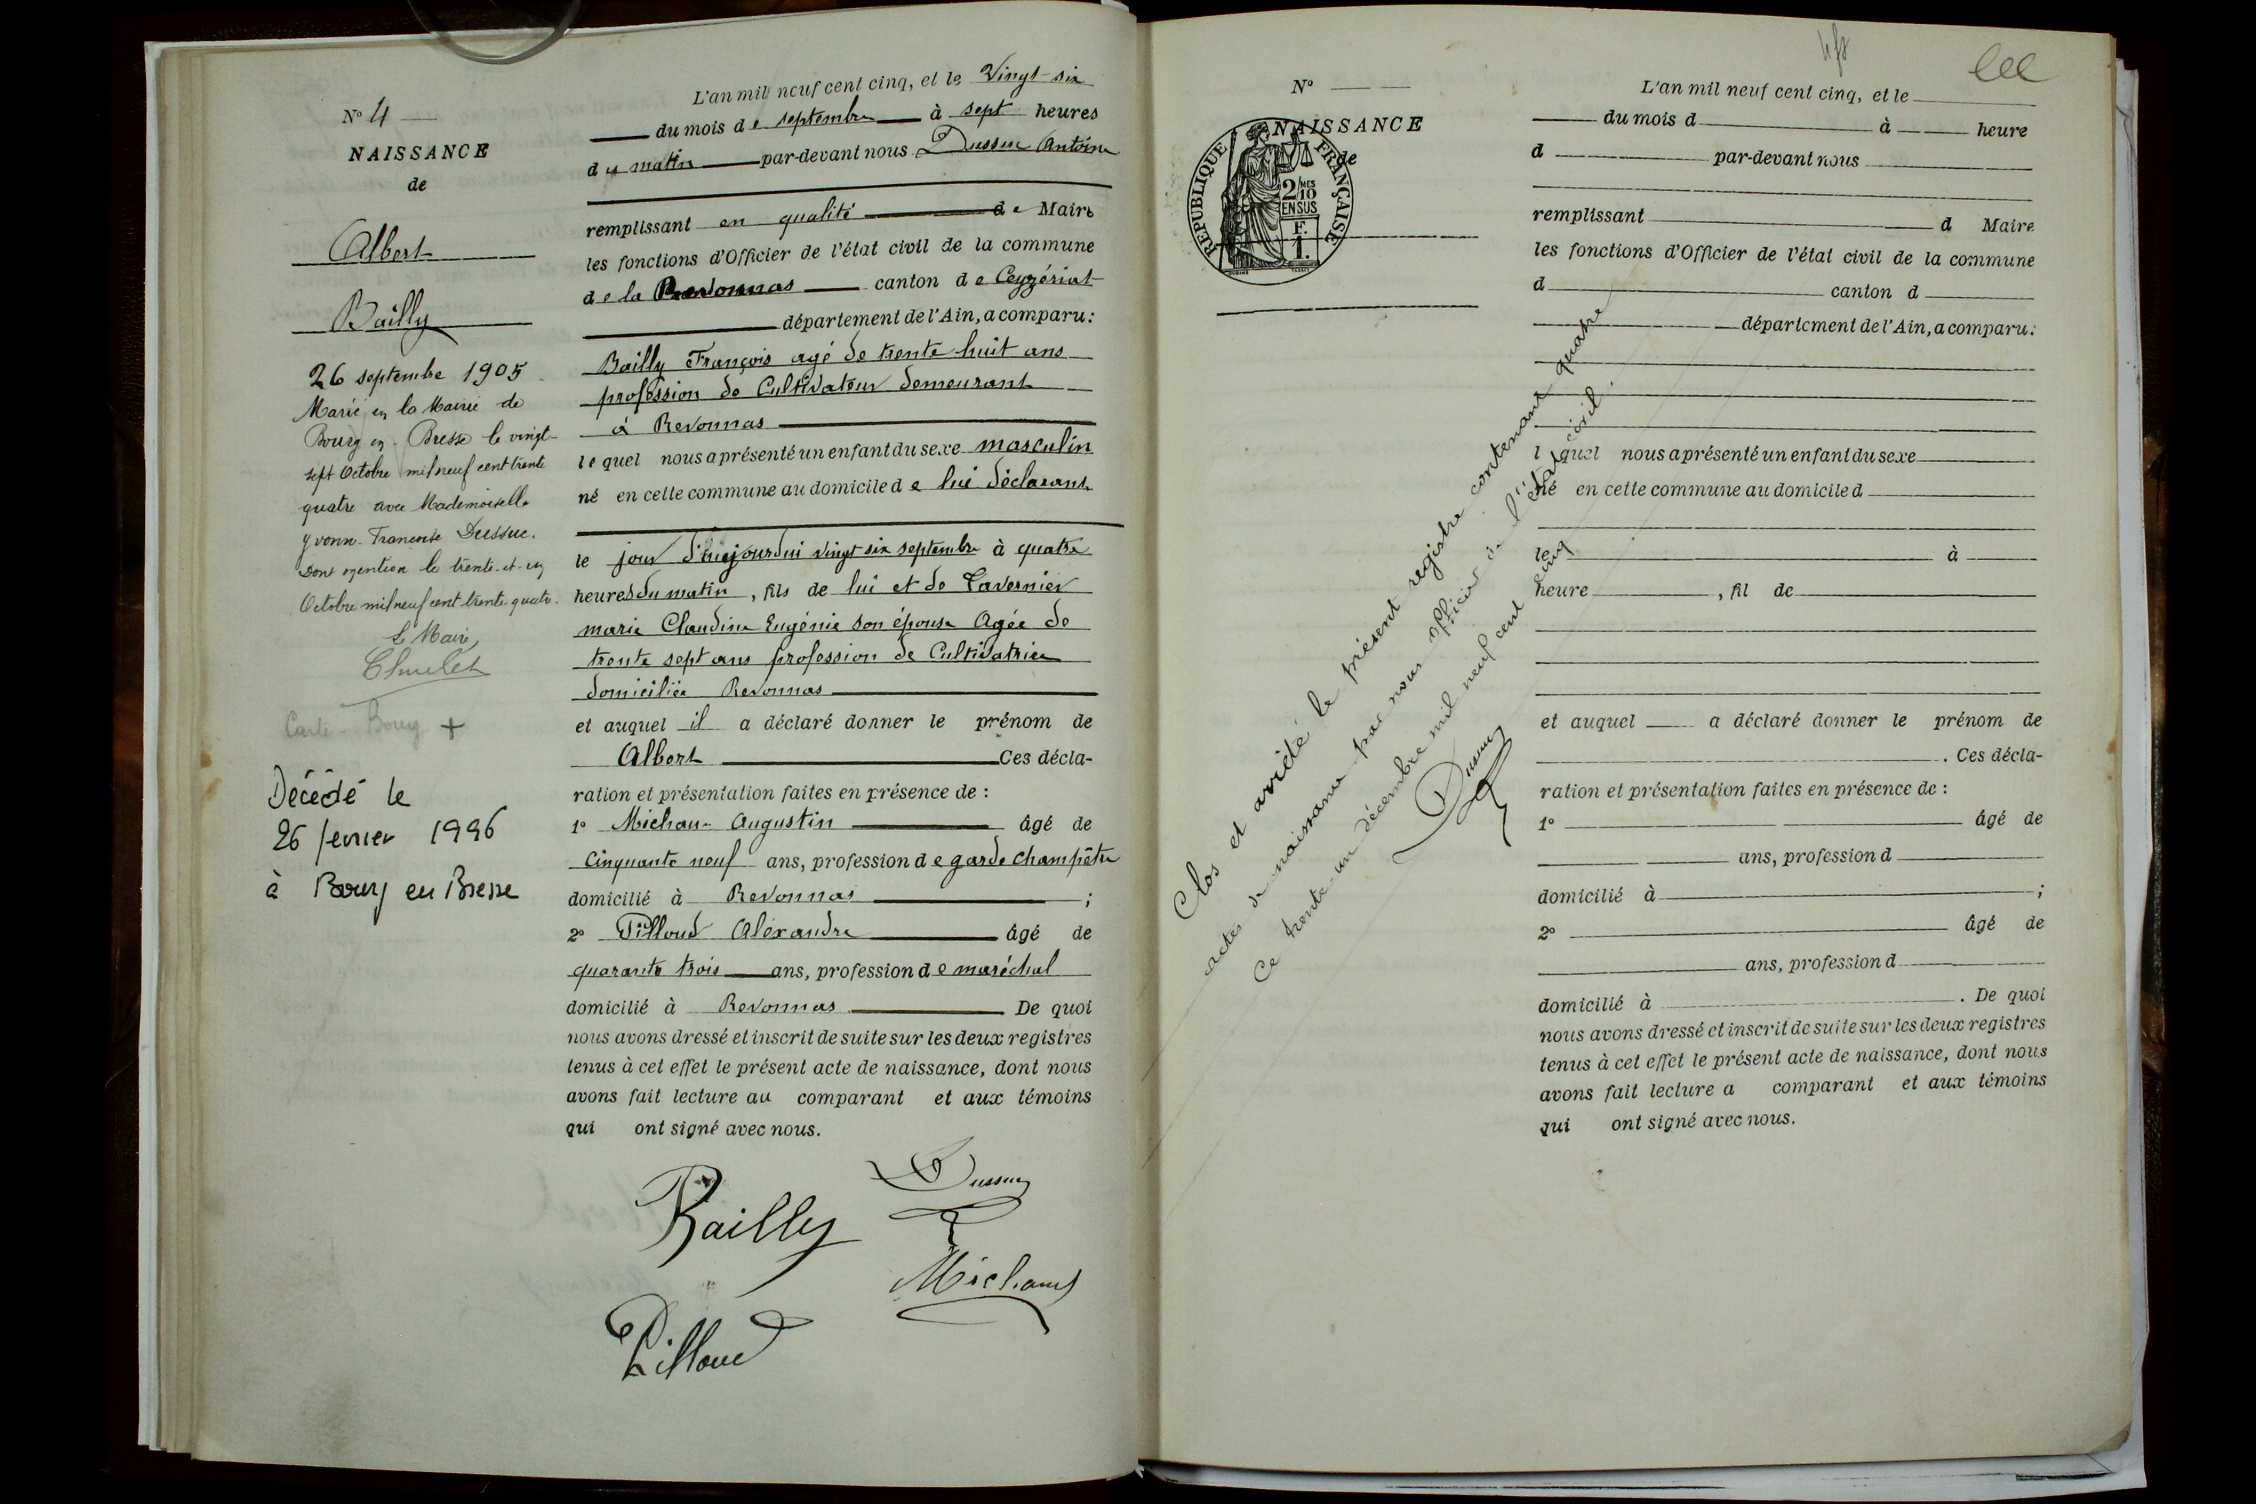 N° 4
NAISSANCE
de
Albert
Bailly
26 septembre 1905
Marié en la Mairie de
Bourg en Bresse le vingt-
sept Octobre mil neuf cent trente
quatre avec Mademoiselle
Yvonne Françoise Dussuc.
Dont mention le trente-et-un
Octobre mil neuf cent trente-quatre.
Le Maire,
Carte - Bourg +
Décédé le
26 fevrier 1996
à Bourg en Bresse
L'an mil neuf cent cinq, et le Vingt-six
du mois de septembre à sept heures
du matin par-devant nous Dussuc Antoine
remplissant en qualité de Maire
les fonctions d'Officier de l'état civil de la commune
de la Revonnas canton de Ceyzériat
département de l'Ain, a comparu:
Bailly François agé de trente huit ans
profession de Cultivateur demeurant
à Revonnas
lequel nous a présenté un enfant du sexe masculin
né en cette commune au domicile de lui déclarant
le jour d'huejourdui vingt six septembre à quatre
heures du matin, fils de lui et de Tavernier
marie Claudine Eugénie son épouse Agée de
trente sept ans profession de Cultivatrice
domiciliée Revonnas
et auquel il a déclaré donner le prénom de
Albert Ces décla-
ration et présentation faites en présence de :
1° Michaud Augustin âgé de
Cinquante neuf ans, profession de garde champêtre
domicilié à Revonnas ;
2° Pilloud Alexandre âgé de
quarante trois ans, profession de maréchal
domicilié à Revonnas De quoi
nous avons dressé et inscrit de suite sur les deux registres
tenus à cet effet le présent acte de naissance, dont nous
avons fait lecture au comparant et aux témoins
qui ont signé avec nous.
Bailly
Dussuc
Michaud
Pilloud
N°
NAISSANCE
de
REPUBLIQUE FRANÇAISE
2/10 MES
EN SUS
F.
1.
L'an mil neuf cent cinq, et le
du mois d à heure
d par-devant nous
remplissant d Maire
les fonctions d'Officier de l'état civil de la commune
d canton d
département de l'Ain, a comparu:
l quel nous a présenté un enfant du sexe
né en cette commune au domicile d
le à
heure , fil de
et auquel a déclaré donner le prénom de
. Ces décla-
ration et présentation faites en présence de :
1° âgé de
ans, profession d
domicilié à ;
2° âgé de
ans, profession d
domicilié à . De quoi
nous avons dressé et inscrit de suite sur les deux registres
tenus à cet effet le présent acte de naissance, dont nous
avons fait lecture a comparant et aux témoins
qui ont signé avec nous.
Clos et arrêté le présent registre contenant quatre
actes de naissance par nous officier de l'état civil.
Ce trente-un décembre mil neuf cent cinq
Dussuc